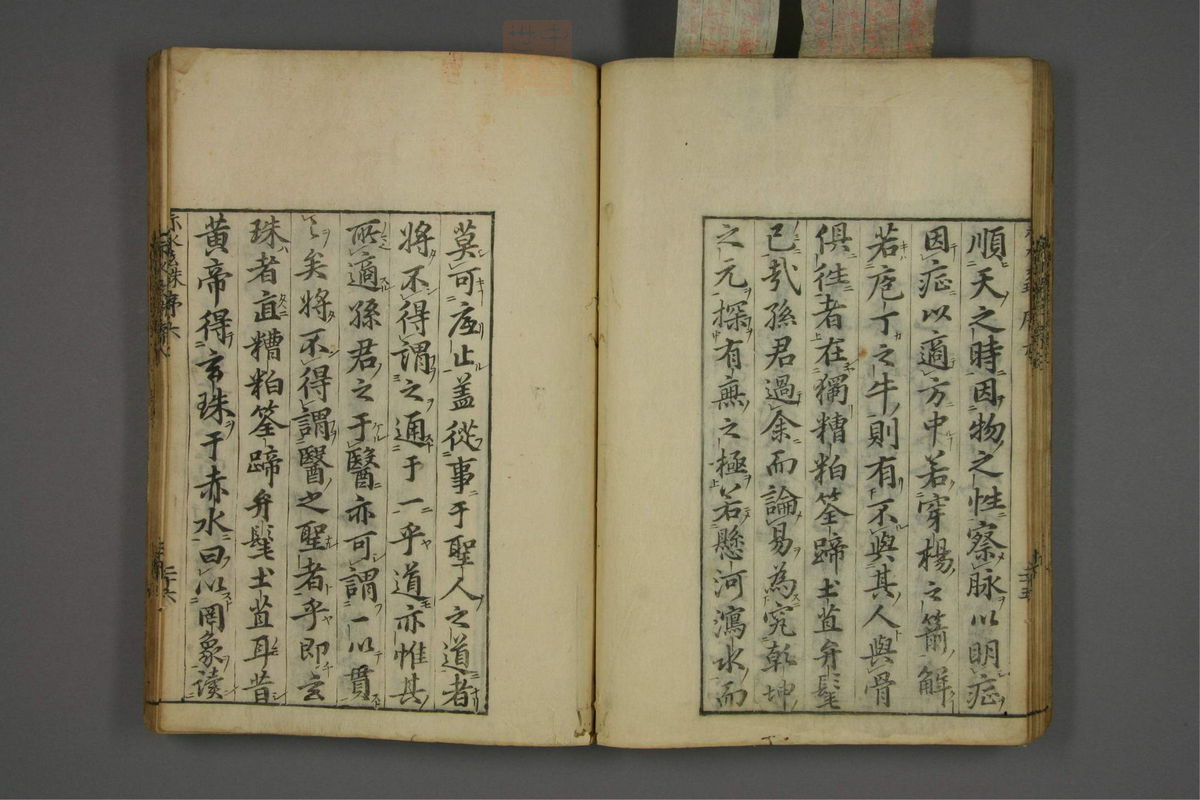 順天之時因物之性察脉以明症
因症以適方中若穿楊之箭解
若庖丁之牛則有不與其人與骨
俱徃者在獨糟粕筌蹄土苴弁髦
已㢤孫君過余而論易為究乾坤
之元探有無之極若懸河瀉水而
莫可底止盖從事于聖人之道者
將不得謂之通于一乎道亦惟其
所適孫君之于醫亦可謂一以貫
之矣將不得謂醫之聖者乎即玄
珠者直糟粕筌蹄弁髦土苴耳昔
黄帝得玄珠于赤水曰以罔象讀
赤水玄珠序